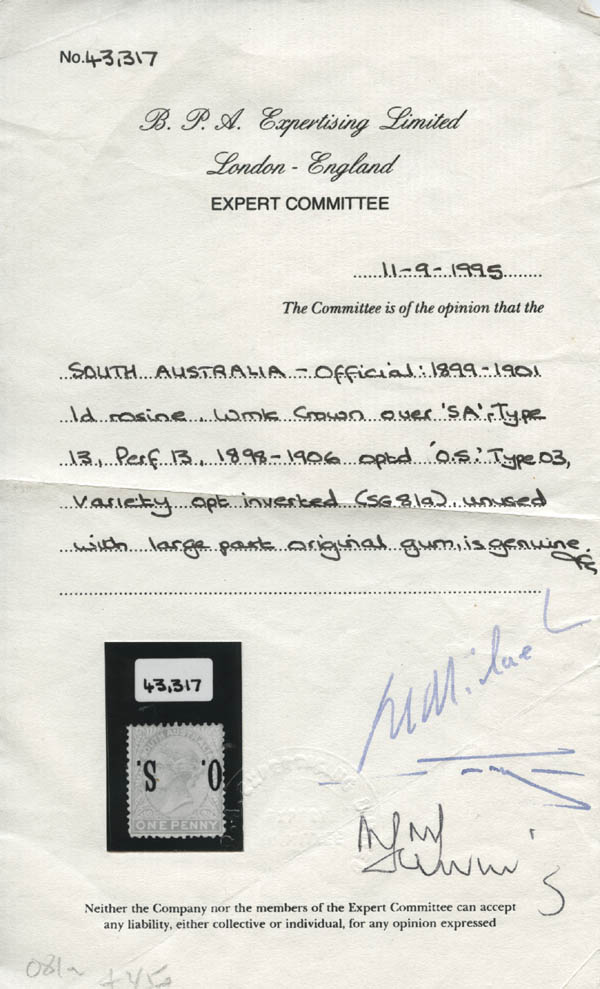 No. 43,317
B. P. A. Expertising Limited
London - England
EXPERT COMMITTEE
11-9-1995
The Committee is of the opinion that the
SOUTH AUSTRALIA - Official: 1899-1901
1d rosine, Wmk Crown over 'SA', Type
13, Perf 13, 1898-1906 optd 'O.S.' Type O3,
Variety opt inverted (SG 81a), unused
with large part original gum, is genuine.
43,317
SOUTH AUSTRALIA
O. S.
ONE PENNY
Neither the Company nor the members of the Expert Committee can accept
any liability, either collective or individual, for any opinion expressed